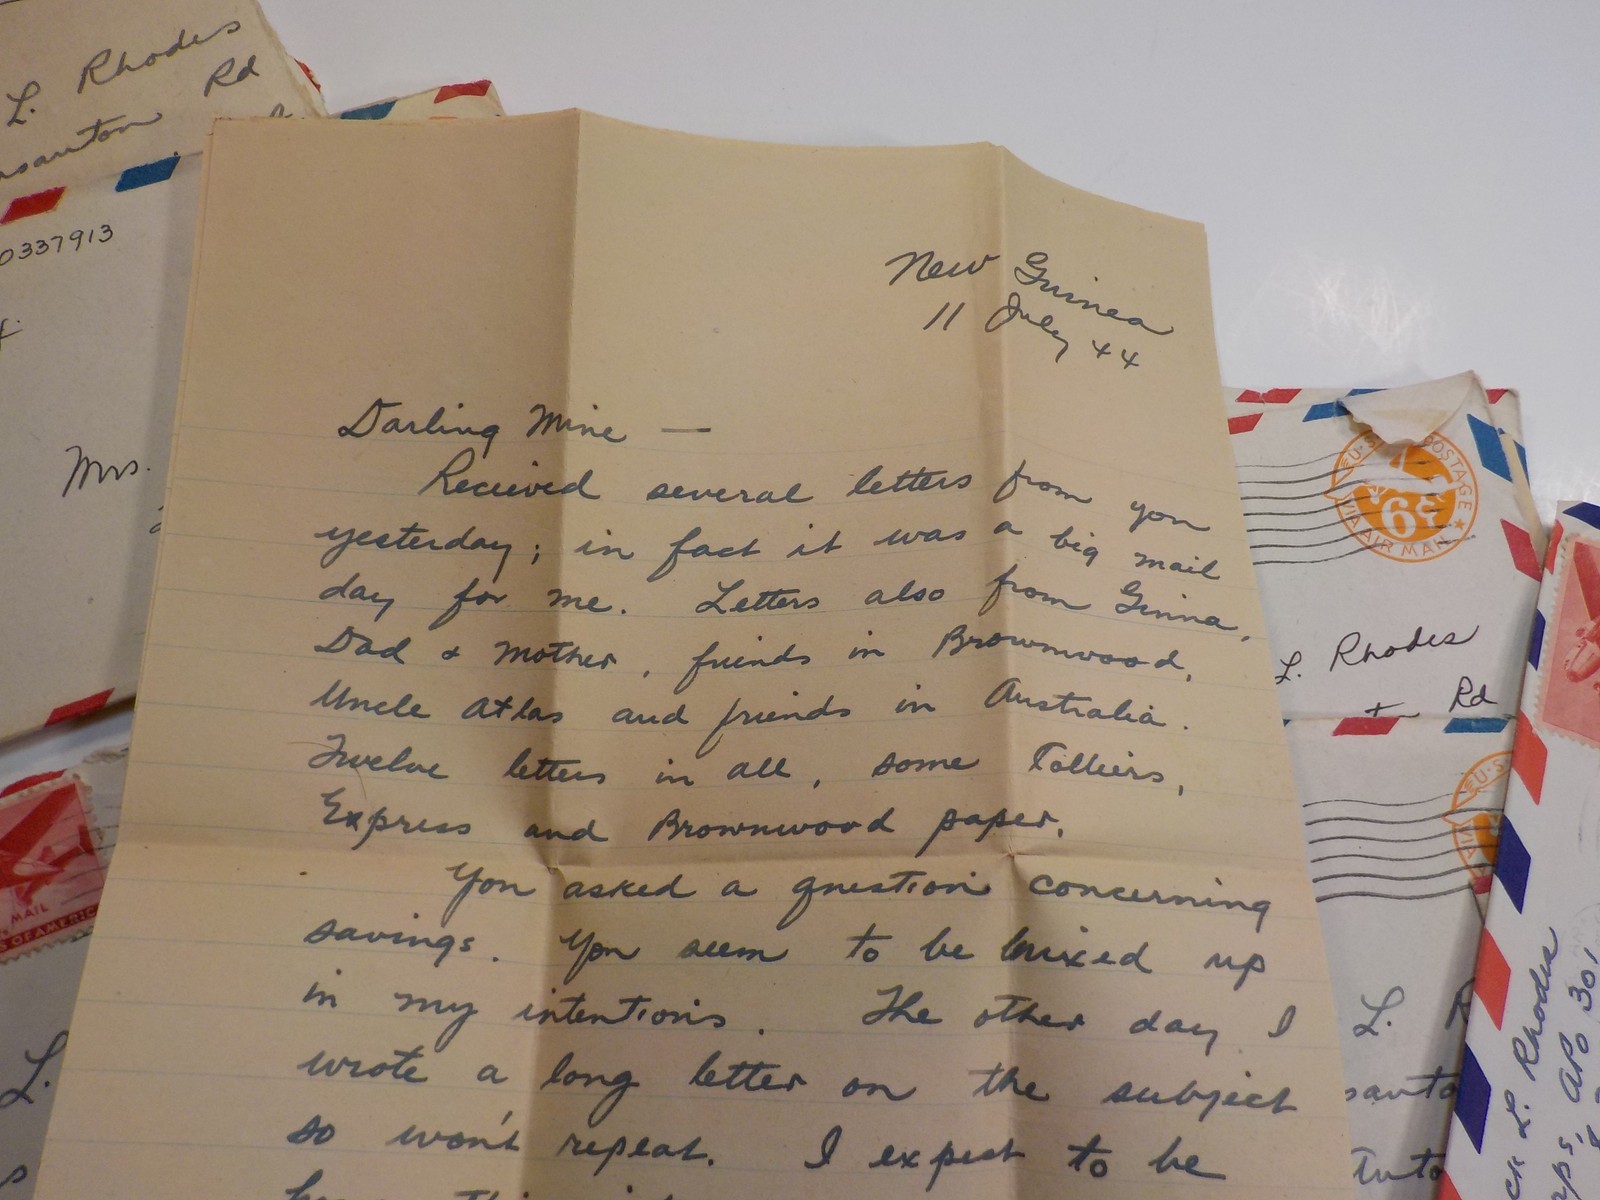 L. Rhodes
Rd
0337913
Mrs.
New Guinea
11 July 44
Darling Mine —
Recieved several letters from you
yesterday; in fact it was a big mail
day for me. Letters also from Ginna,
Dad & Mother, friends in Brownwood,
Uncle Atlas and friends in Australia.
Twelve letters in all, some Colliers,
Express and Brownwood paper.
You asked a question concerning
savings. You seem to be mixed up
in my intentions. The other day I
wrote a long letter on the subject
so won't repeat. I expect to be
U.S. POSTAGE
6¢
VIA AIR MAIL
L. Rhodes
Rd
U.S.
VIA
MAIL
S OF AMERICA
L.
L. R
L. Rhodes
APO 301